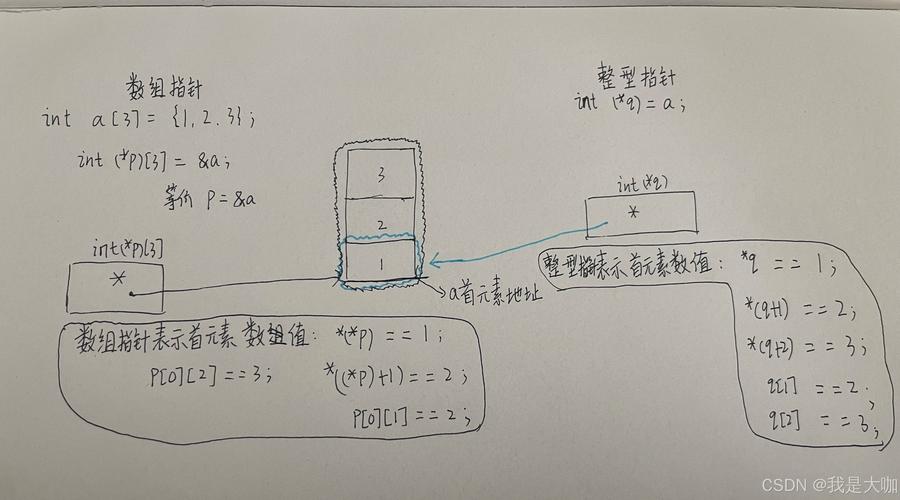 数组指针
int a[3] = {1,2.3};
int (*p)[3] = &a;
等价 P=&a
整型指针
int (*q)=a;
3
2
1
int(*p)[3]
*
int(*q)
*
a首元素地址
数组指针表示首元素 数组值: *(*p) == 1;
P[0][2]==3; *((*p)+1)==2;
P[0][1]==2;
整型指针表示首元素数值: *q == 1;
*(q+1) ==2;
*(q+2)==3;
q[1] ==2;
q[2] ==3;
CSDN @我是大咖